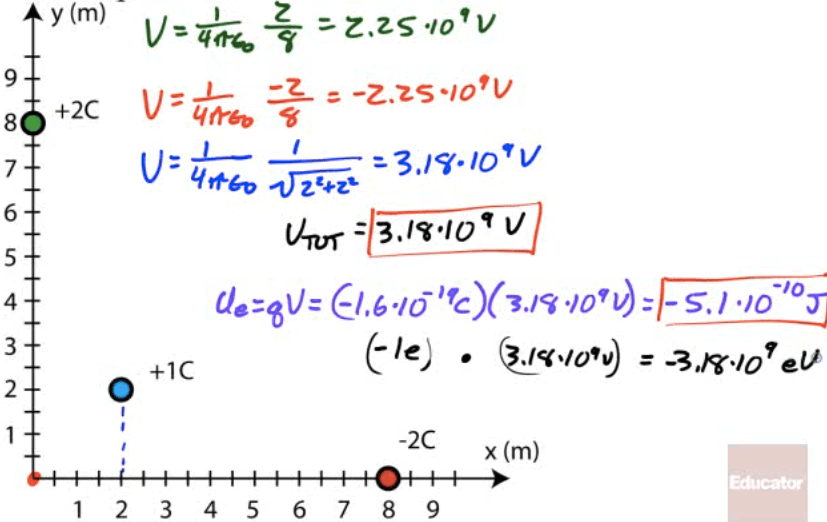 y (m)
V = 1/4πε₀ 2/8 = 2.25·10⁹ V
9
+2C
V = 1/4πε₀ -2/8 = -2.25·10⁹ V
8
V = 1/4πε₀ 1/√2²+2² = 3.18·10⁹ V
7
6
V_TOT = 3.18·10⁹ V
5
4
Ue=qV=(-1.6·10⁻¹⁹C)(3.18·10⁹V)=-5.1·10⁻¹⁰J
3
(-1e) • (3.18·10⁹V) = -3.18·10⁹ eV
+1C
2
1
-2C
x (m)
1 2 3 4 5 6 7 8 9
Educator